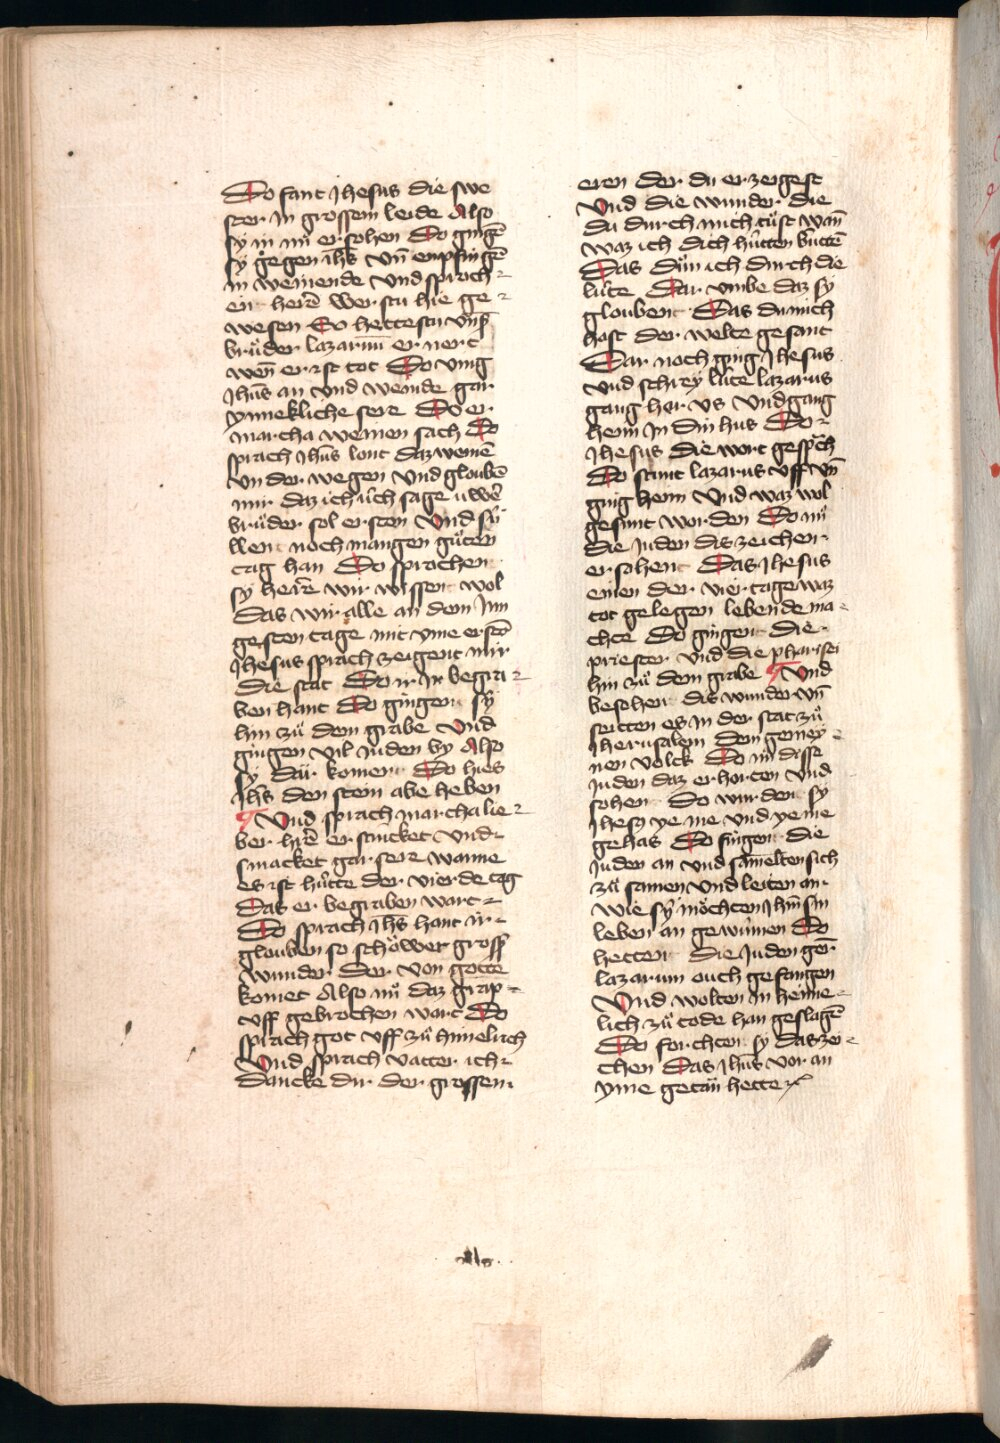 Do fant Jhesus die swe
ster In grossem leide Also
sy in nü ersohen Do gingē
sy gegen ihs Vn̄ enpfingē
in weinende Vnd sprach
en herē wer stu hie ge
wesen So hettestu vnsʒ
brůder lazarum ernert
wen̄ er ist tot Do ving
Jhus an vnd weinde gar
ynnekliche sere Do er
martha weinen sach Do
sprach Jhus lont daz weinē
vnder wegen Vnd gloubē
mir daz ich üch sage uwer̄
brůder sol ersten Vnd sü
llent noch mangen gůten
tag han Do sprachen
sy hearē wir wissent wol
Das wir alle an dem Jun
gesten tage mit yme erstō
Jhesus sprach zeigent mir
die stat Do ir In begra
ben hant Do gingen sy
hin zů dem grabe Vnd
gingen vil Juden by Also
sy dar koment Do hies
Jhs den stein abe heben
¶ Vnd sprach martha lie
ber hrē er stincket Vnd
smacket gar sere wanne
es ist hütte der vierde tag
Das er begraben wart
Do sprach Jhs hant ir
glouben so schöwet grosß
wunder der von gotte
komet Also nü daz grap
vff gebrochen wart Do
sprach got vff zů himelrich
Vnd sprach vatter ich
dancke dir der grossen
eren der du erzeigest
Vnd die wunder die
du durch mich tüst wan̄
waz ich dich hütten büttē
Das dün ich durch die
lüte Dar vmbe daz sy
gloubent Das du mich
host der welte gesant
Dar noch ging Jhesus
vnd schrey lüte lazarus
gang her vs Vnd gang
heim In din hus Do
Jhesus die wort gespch
Do stunt lazarus vff vn̄
ging heim Vnd waz wol
gesunt worden Do nů
die Juden dis zeichen
ersohent Das Jhesus
einen der vier tage waz
tot gelegen lebende ma
chte Do gingent die
priester vnd die pharisei
hin zů dem grabe ¶ Vnd
besohent dis wunder vn̄
seitten es In der stat zů
Jherusalem dem gemey
nen volck Do nü disse
Juden daz erhorten vnd
sohen Do wurden sy
Jhesu ye me vnd ye me
gehas Do fingen die
Juden an vnd samelten sich
zů samen vnd leiten an
wie sy möchten Jhm sin
leben an gewinnen Do
hetten die Juden ger̄
lazarum ouch gefangen
Vnd wolten In heime
lich zů tode han geslagē
Do forchten sy das zei
chen Das Jhus vor an
yme getän hette